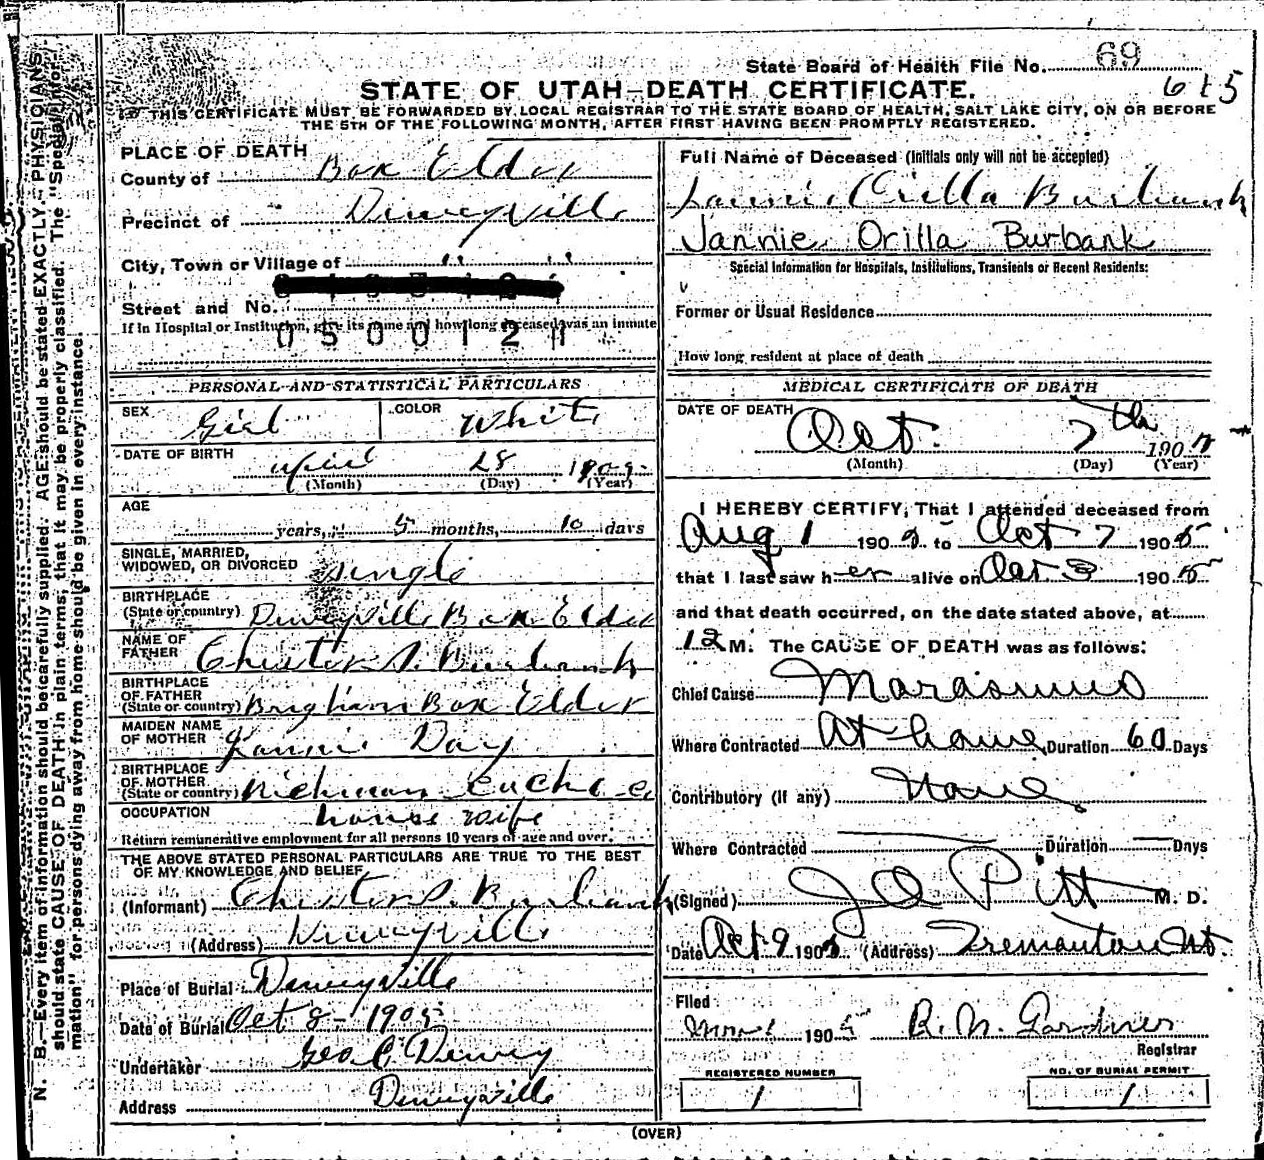 State Board of Health File No. 69
STATE OF UTAH-DEATH CERTIFICATE.
615
THIS CERTIFICATE MUST BE FORWARDED BY LOCAL REGISTRAR TO THE STATE BOARD OF HEALTH, SALT LAKE CITY, ON OR BEFORE
THE 5TH OF THE FOLLOWING MONTH, AFTER FIRST HAVING BEEN PROMPTLY REGISTERED.
PLACE OF DEATH
County of Box Elder
Precinct of Deweyville
City, Town or Village of " "
Street and No.
If in Hospital or Institution, give its name and how long deceased was an inmate
0500121
PERSONAL AND STATISTICAL PARTICULARS
SEX Girl COLOR White
DATE OF BIRTH April 28 1905
(Month) (Day) (Year)
AGE
years, 5 months, 10 days
SINGLE, MARRIED,
WIDOWED, OR DIVORCED single
BIRTHPLACE
(State or country) Deweyville Box Elder
NAME OF
FATHER Chester S. Burbank
BIRTHPLACE
OF FATHER
(State or country) Brigham Box Elder
MAIDEN NAME
OF MOTHER Day
BIRTHPLACE
OF MOTHER
(State or country) Richman
OCCUPATION house wife
Return remunerative employment for all persons 10 years of age and over.
THE ABOVE STATED PERSONAL PARTICULARS ARE TRUE TO THE BEST
OF MY KNOWLEDGE AND BELIEF
(Informant) Chester S. Burbank
(Address) Deweyville
Place of Burial Deweyville
Date of Burial Oct 8 - 1905
Undertaker Geo C. Dewey
Address Deweyville
Full Name of Deceased (Initials only will not be accepted)
Jannie Orilla Burbank
Jannie Orilla Burbank
Special Information for Hospitals, Institutions, Transients or Recent Residents:
Former or Usual Residence
How long resident at place of death
MEDICAL CERTIFICATE OF DEATH
DATE OF DEATH Oct. 7th 1905
(Month) (Day) (Year)
I HEREBY CERTIFY, That I attended deceased from
Aug 1 1905 to Oct 7 1905
that I last saw her alive on Oct 3 1905
and that death occurred, on the date stated above, at
12 M. The CAUSE OF DEATH was as follows:
Chief Cause Marasmus
Where Contracted At home Duration 60 Days
Contributory (if any) None
Where Contracted Duration Days
(Signed) J O Pitt M. D.
Date Oct 9 1905 (Address) Tremonton Ut.
Filed
Nov 1 1905 R. N. Gardner
Registrar
REGISTERED NUMBER
1
NO. OF BURIAL PERMIT
1
(OVER)
N. B.—Every item of information should be carefully supplied. AGE should be stated EXACTLY. PHYSICIANS
should state CAUSE OF DEATH in plain terms, that it may be properly classified. The "Special Infor-
mation" for persons dying away from home should be given in every instance.